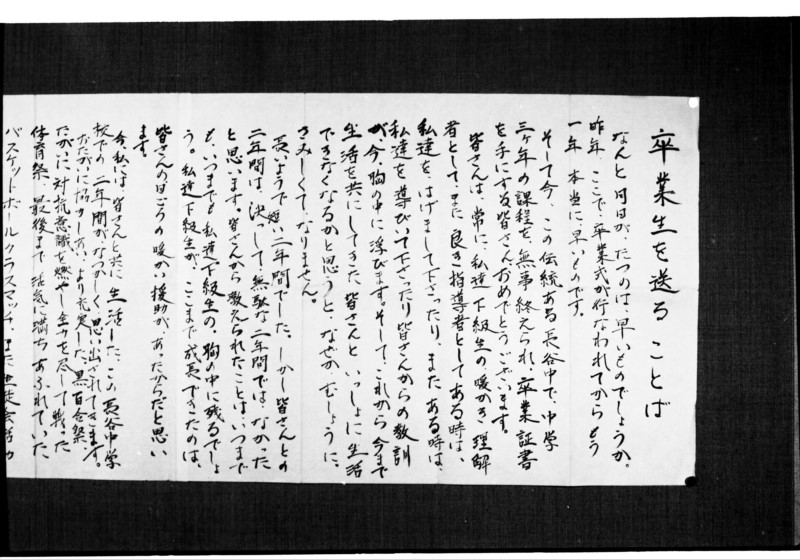 卒業生を送ることば
なんと月日が、たつのは、早いものでしょうか。
昨年、ここで、卒業式が行なわれてからもう
一年、本当に、早いものです。
そして今、この伝統ある長谷中で、中学
三ヶ年の課程を、無事終えられ、卒業証書
を手にする皆さんおめでとうございます。
皆さんは、常に、私達下級生の、暖かき理解
者として、また、良き指導者としてある時は、
私達を、はげまして下さったり、また、ある時は、
私達を導びいて下さったり皆さんからの教訓
が、今、胸の中に浮びます。そして、これから今まで
生活を共にしてきた皆さんと、いっしょに生活
できなくなるかと思うと、なぜか、むしょうに、
さみしくて、なりません。
長いようで短い二年間でした。しかし皆さんとの
二年間は、決っして、無駄な二年間では、なかった
と思います。皆さんから教えられたことは、いつまで
も、いつまでも私達下級生の、胸の中に残るでしょ
う。私達下級生が、ここまで成長できたのは、
皆さんの日ごろの暖かい援助が、あったからだと思い
ます。
今、私には、皆さんと共に生活した、この長谷中学
校での二年間が、なつかしく思い出されてきます。
おたがいに協力しあい、より充実した、黒百合祭
たがいに対抗意識を燃やし全力を尽して戦った
体育祭、最後まで活気に満ちあふれていた、
バスケットボールクラスマッチ、また生徒会活力